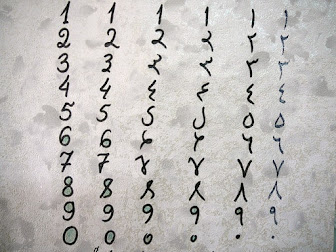 1 1 1 1 ١ ١
2 2 2 2 ٢ ٢
3 3 ٣ ٣
4 4 ٤ ٤ ٤
5 5 5 ٥ ٥
6 6 6 ٦ ٦
7 7 ٧ ٧ ٧
8 8 8 ٨ ٨ ٨
9 9 9 9 ٩ ٩
0 0 0 ٠ ٠ ٠